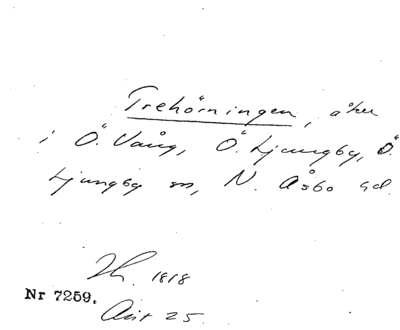 Trehörningen, åker
i Ö. Vång, Ö. Ljungby, Ö.
Ljungby sn, N. Åsbo hd.
1818
Nr 7259.
Akt 25.